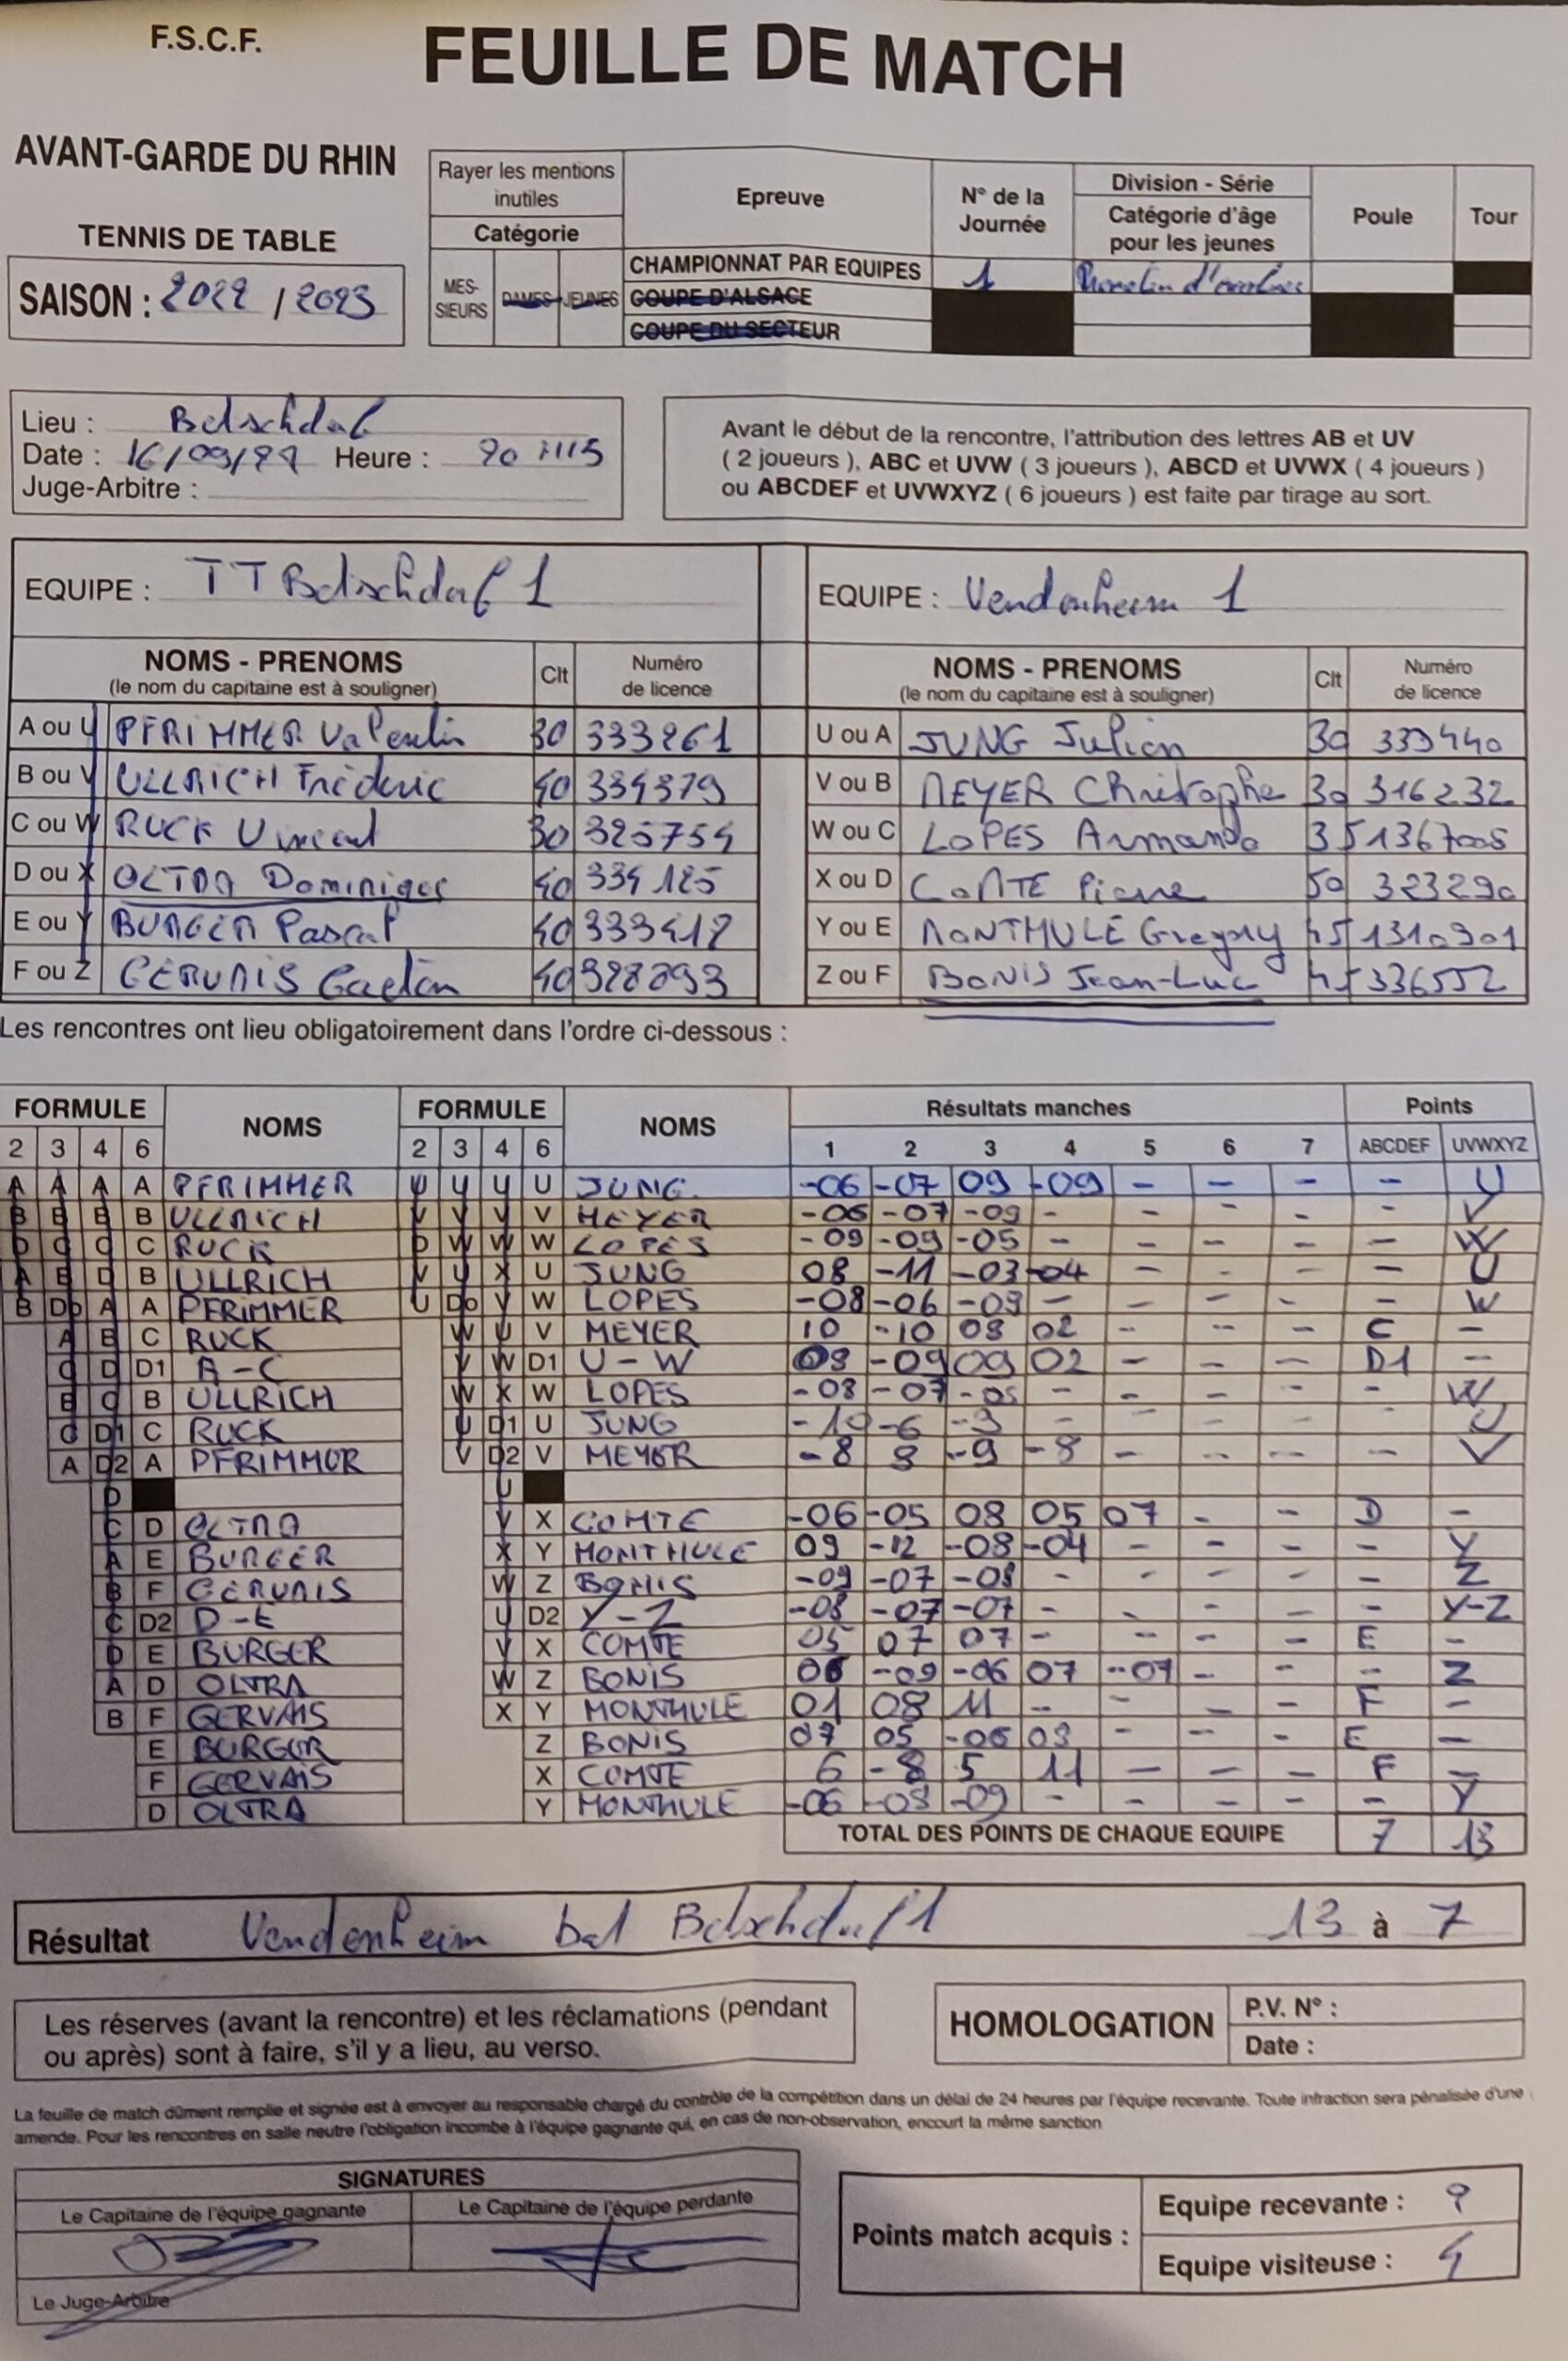 F.S.C.F.
FEUILLE DE MATCH
AVANT-GARDE DU RHIN
TENNIS DE TABLE
SAISON : 2022 / 2023
Rayer les mentions inutiles
Catégorie
MES-SIEURS DAMES JEUNES
Epreuve
CHAMPIONNAT PAR EQUIPES
COUPE D'ALSACE
COUPE DU SECTEUR
N° de la Journée
1
Division - Série
Catégorie d'âge pour les jeunes
Poule
Tour
Lieu :
Date : 16/09/22 Heure : 20 H15
Juge-Arbitre :
Avant le début de la rencontre, l'attribution des lettres AB et UV
( 2 joueurs ), ABC et UVW ( 3 joueurs ), ABCD et UVWX ( 4 joueurs )
ou ABCDEF et UVWXYZ ( 6 joueurs ) est faite par tirage au sort.
EQUIPE : TT Betschdorf 1
EQUIPE : Vendenheim 1
NOMS - PRENOMS Clt Numéro de licence
(le nom du capitaine est à souligner)
NOMS - PRENOMS Clt Numéro de licence
(le nom du capitaine est à souligner)
A ou U PFRIMMER Valentin 30 333261 U ou A JUNG Julien 30 333440
B ou V ULLRICH Fréderic 40 334379 V ou B MEYER Christophe 30 316232
C ou W RUCK Vincent 30 325754 W ou C LOPES Armando 35 1367005
D ou X OLTRA Dominique 40 334125 X ou D COMTE Pierre 50 323290
E ou Y BURGER Pascal 40 333412 Y ou E MONTHULE Gregory 45 1310901
F ou Z GERVAIS Gaetan 40 328293 Z ou F BONIS Jean-Luc 45 336552
Les rencontres ont lieu obligatoirement dans l'ordre ci-dessous :
FORMULE NOMS FORMULE NOMS Résultats manches Points
2 3 4 6 2 3 4 6 1 2 3 4 5 6 7 ABCDEF UVWXYZ
A A A A PFRIMMER U U U U JUNG -06 -07 09 -09 - - - - U
B B B B ULLRICH V V V V MEYER -06 -07 -09 - - - - - V
D C C C RUCK D W W W LOPES -09 -09 -05 - - - - - W
A B D B ULLRICH V U X U JUNG 08 -11 -03 -04 - - - - U
B Do A A PFRIMMER U Do V W LOPES -08 -06 -09 - - - - - W
A B C RUCK W U V MEYER 10 -10 08 02 - - - C -
C D D1 A-C V W D1 U-W 08 -09 09 02 - - - D1 -
B C B ULLRICH W X W LOPES -08 -07 -05 - - - - - W
C D1 C RUCK U D1 U JUNG -10 -6 -3 - - - - - U
A D2 A PFRIMMER V D2 V MEYER -8 8 -9 -8 - - - - V
D U
C D OLTRA V X COMTE -06 -05 08 05 07 - - D -
A E BURGER X Y MONTHULE 09 -12 -08 -04 - - - - Y
B F GERVAIS W Z BONIS -09 -07 -08 - - - - - Z
C D2 D-E U D2 Y-Z -08 -07 -07 - - - - - Y-Z
D E BURGER V X COMTE 05 07 07 - - - - E -
A D OLTRA W Z BONIS 06 -09 -06 07 -07 - - - Z
B F GERVAIS X Y MONTHULE 01 08 11 - - - - F -
E BURGER Z BONIS 07 05 -06 03 - - - E -
F GERVAIS X COMTE 6 -8 5 11 - - - F -
D OLTRA Y MONTHULE -06 -08 -09 - - - - - Y
TOTAL DES POINTS DE CHAQUE EQUIPE 7 13
Résultat Vendenheim bat Betschdorf 1 13 à 7
Les réserves (avant la rencontre) et les réclamations (pendant
ou après) sont à faire, s'il y a lieu, au verso.
HOMOLOGATION P.V. N° :
Date :
La feuille de match dûment remplie et signée est à envoyer au responsable chargé du contrôle de la compétition dans un délai de 24 heures par l'équipe recevante. Toute infraction sera pénalisée d'une
amende. Pour les rencontres en salle neutre l'obligation incombe à l'équipe gagnante qui, en cas de non-observation, encourt la même sanction
SIGNATURES
Le Capitaine de l'équipe gagnante Le Capitaine de l'équipe perdante
Le Juge-Arbitre
Points match acquis :
Equipe recevante :
Equipe visiteuse :